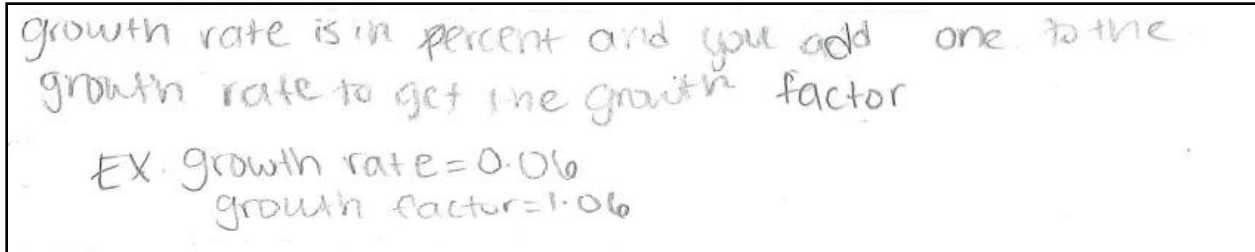 growth rate is in percent and you add one to the
growth rate to get the growth factor
EX. growth rate = 0.06
growth factor = 1.06